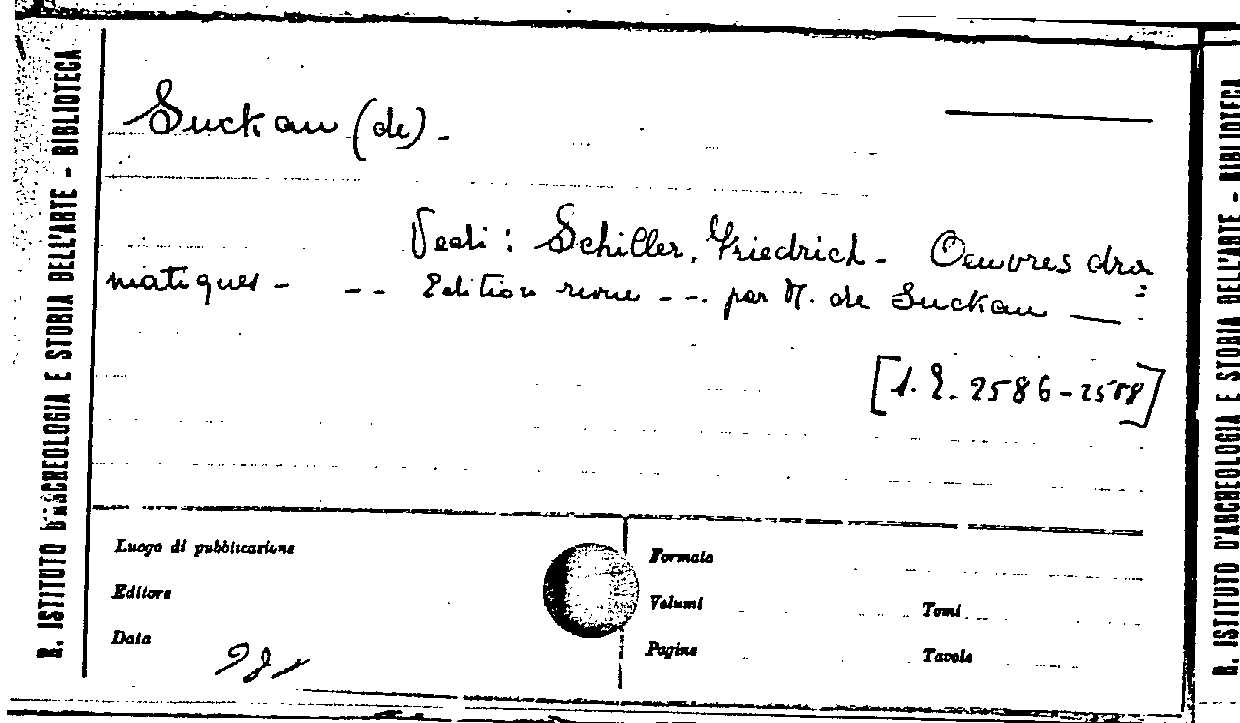 R. ISTITUTO D'ARCHEOLOGIA E STORIA DELL'ARTE - BIBLIOTECA
Suckau (de) -
Vedi : Schiller, Friedrich - Oeuvres dra
matiques - - - Edition revue - - . par M. de Suckau —
[1. E. 2586-2588]
Luogo di pubblicazione
Editore
Data
Formato
Volumi
Tomi
Pagine
Tavole
981
R. ISTITUTO D'ARCHEOLOGIA E STORIA DELL'ARTE - BIBLIOTECA